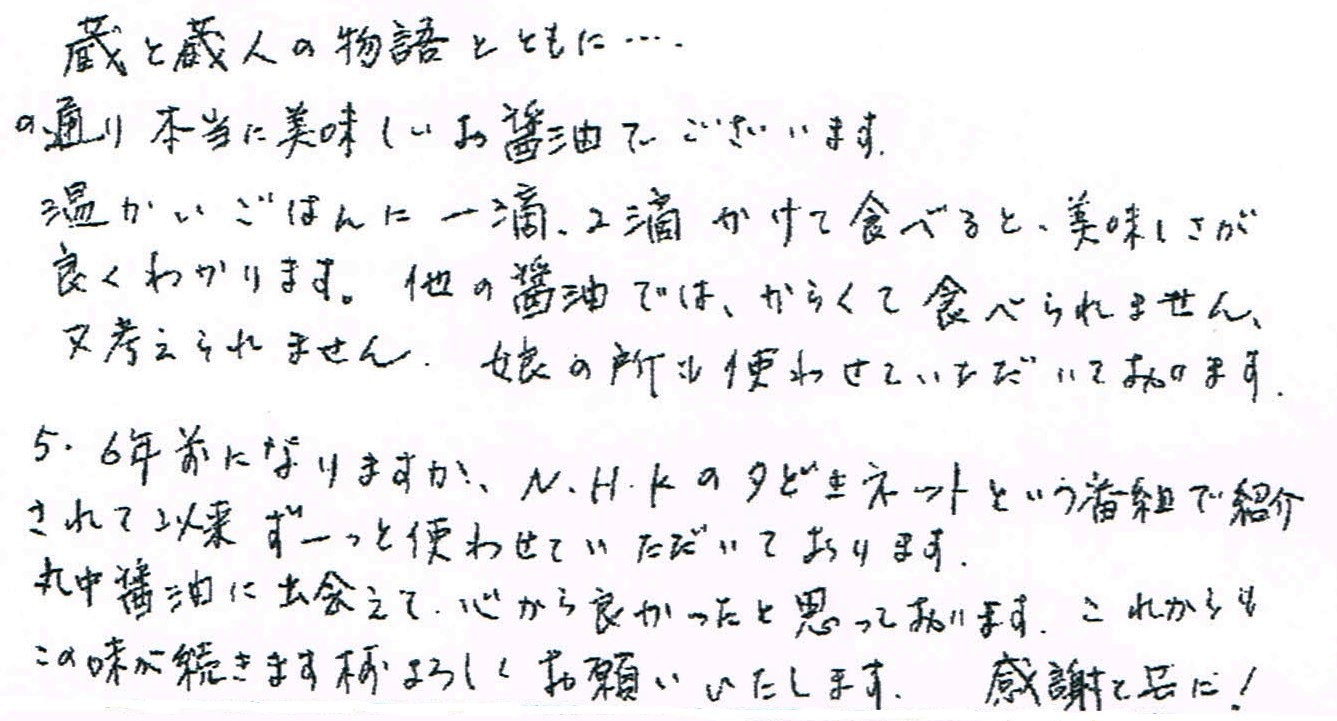 蔵と蔵人の物語とともに….
の通り本当に美味しいお醤油でございます.
温かいごはんに一滴、2滴かけて食べると、美味しさが
良くわかります。他の醤油では、からくて食べられません、
又考えられません. 娘の所も使わせていただいております.
5・6年前になりますが、N.H.Kの夕どきネットという番組で紹介
されて以来ずーっと使わせていただいております.
丸中醤油に出会えて、心から良かったと思っております. これからも
この味が続きます様よろしくお願いいたします. 感謝と共に!